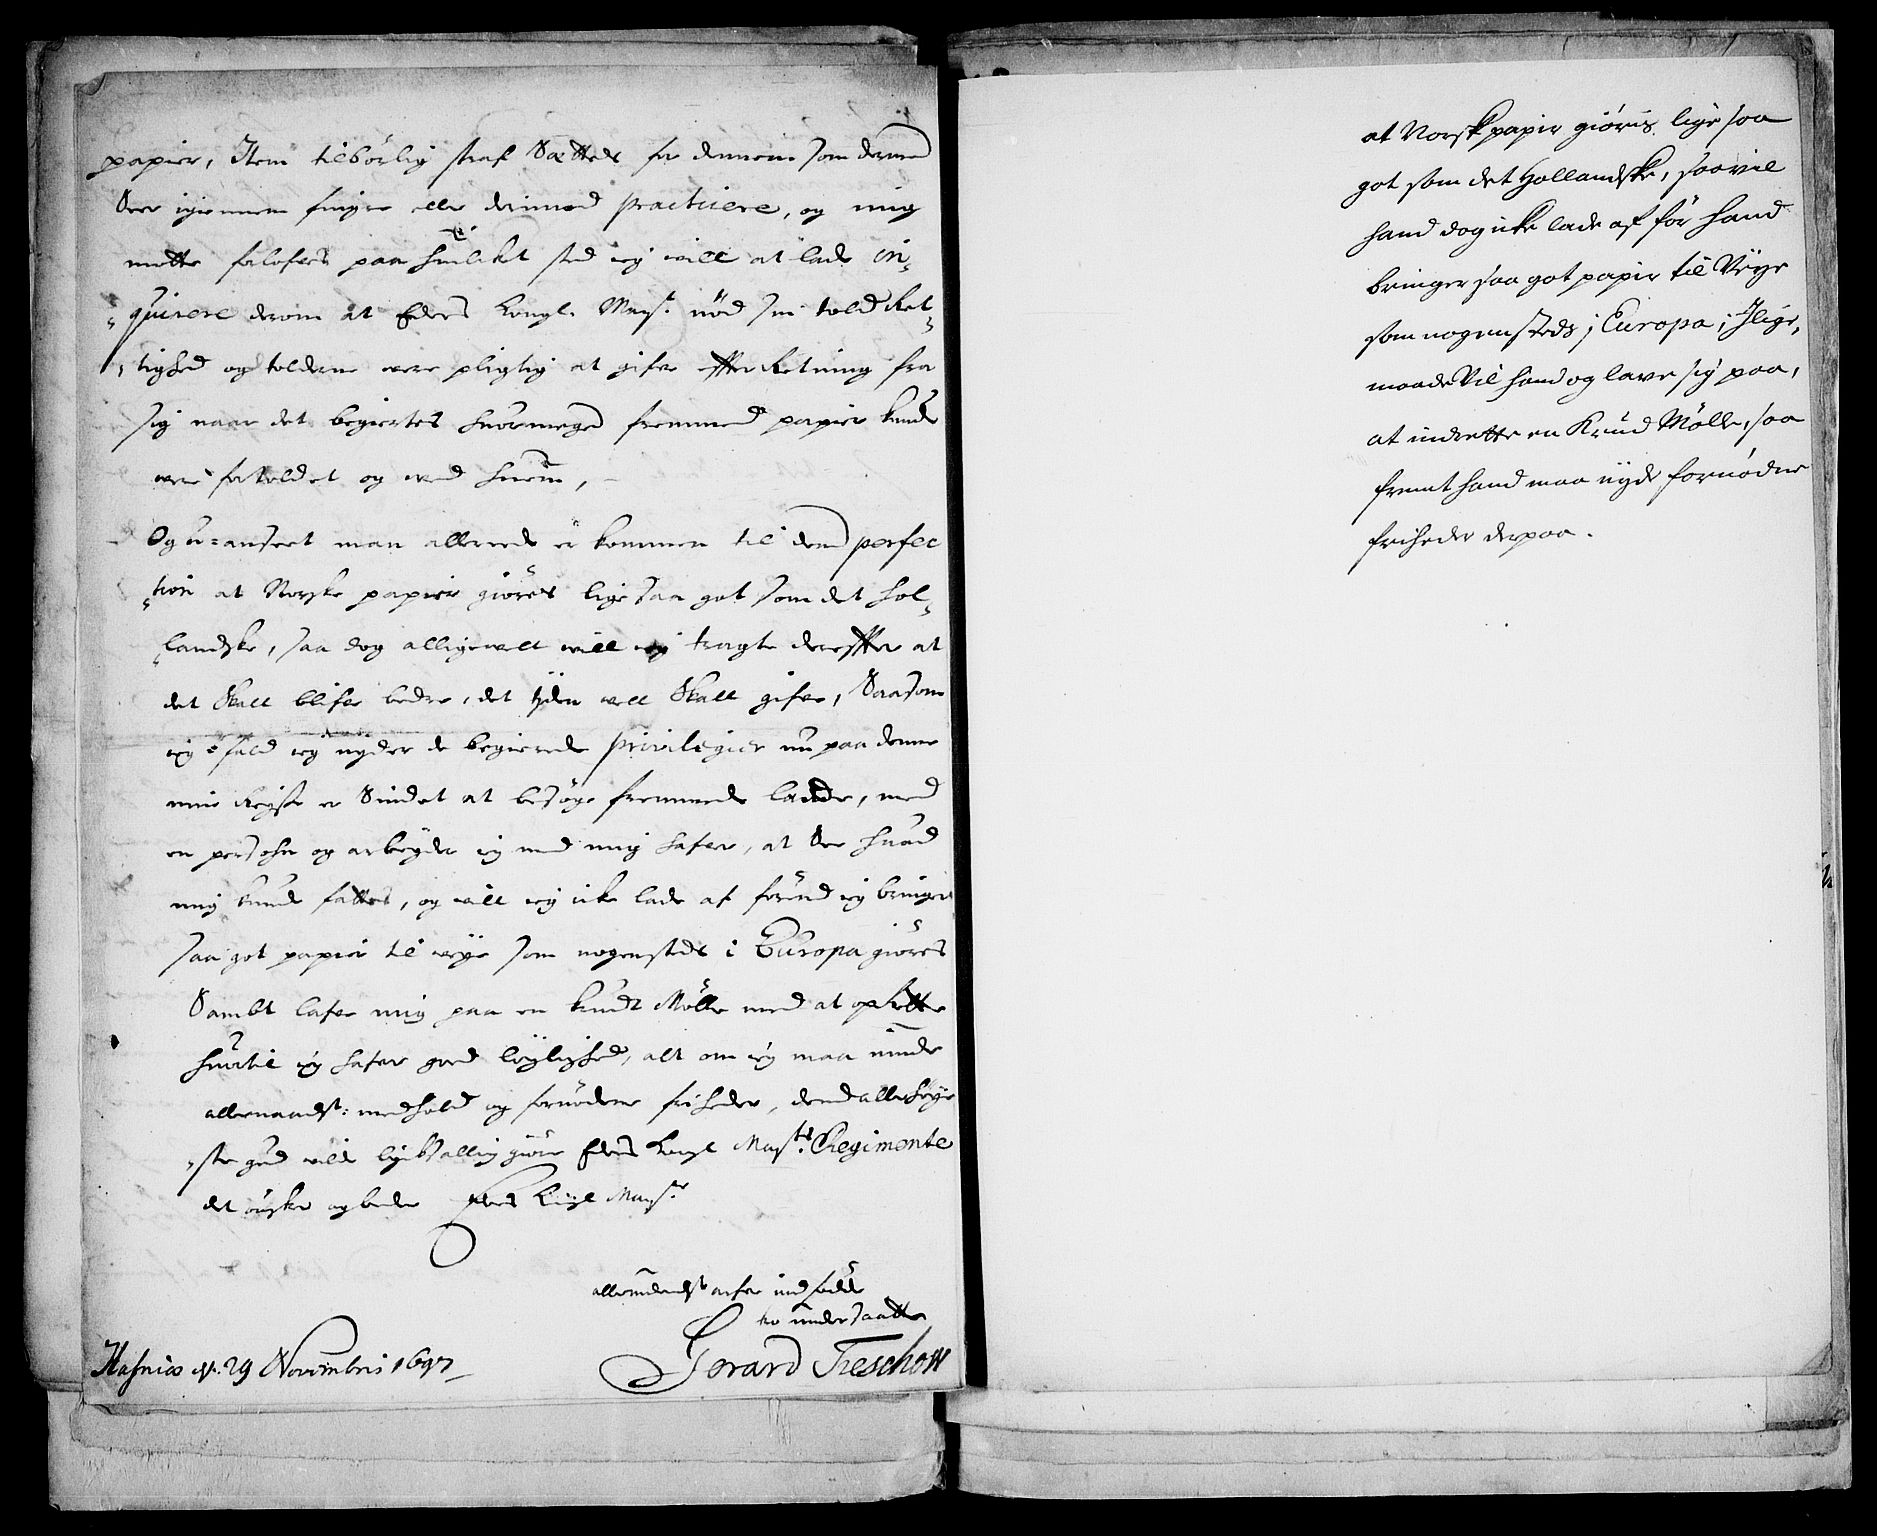 papier, Item tilbörlig straf Sættes for dennem som dermed
Seer igiennem fingre eller derimod practicere, og mig
motte forlofves paa huilket sted ieg will at lade in„
„quirere derom at Eders Kongl. Mayst. nöd sin told Ret„
„tighed og tolderne vere pligtig at gifve effterRetning fra
sig naar det begiertes huormeget fremmed papier kunde
vere fortoldet og ved huem,
Og u-anseet man allerede er kommen til dend perfec
„tion at Norske papier giöres lige saa got som det Hol„
„landske, saa dog alligevell will ieg tragte dereffter at
det Skall blifve bedre, det tiden vell Skall gifve, Saasom
ieg i fald ieg nyder de begierede privilegier nu paa denne
min Reyse er Sindet at besöge fremmede lande, med
en persohn og arbeyder ieg med mig hafver, at See huad
mig kunde fattes, og will ieg icke lade af förend ieg bringer
saa got papier til veye som nogensteds i Europa giöres
Sambt lafve mig paa en krudt Mölle med at opRette
huortil ieg hafver god leylighed, alt om ieg maa nÿde
allernaadst: medhold og fornödene friheder, dend allerhöye
„ste gud wilde lyksallig giöre Eders Kongl Maysts. Regimente
det önsker og beder Eders Kongl Mayst.
allerunderdst arfve indfödde
tro undersaatte
Hafniæ d. 29 Novembris 1697
Gerard Treschow
at Norsk papir giöris lige saa
got som det Hollandske, saa vil
hand dog icke lade af för hand
bringer saa got papir til Veye
som nogensteds i Europa; Jlige„
maade Vil hand og lave sig paa,
at indrette en Krud Mölle, saa
fremt hand maa nyde fornödne
friheder derpaa.